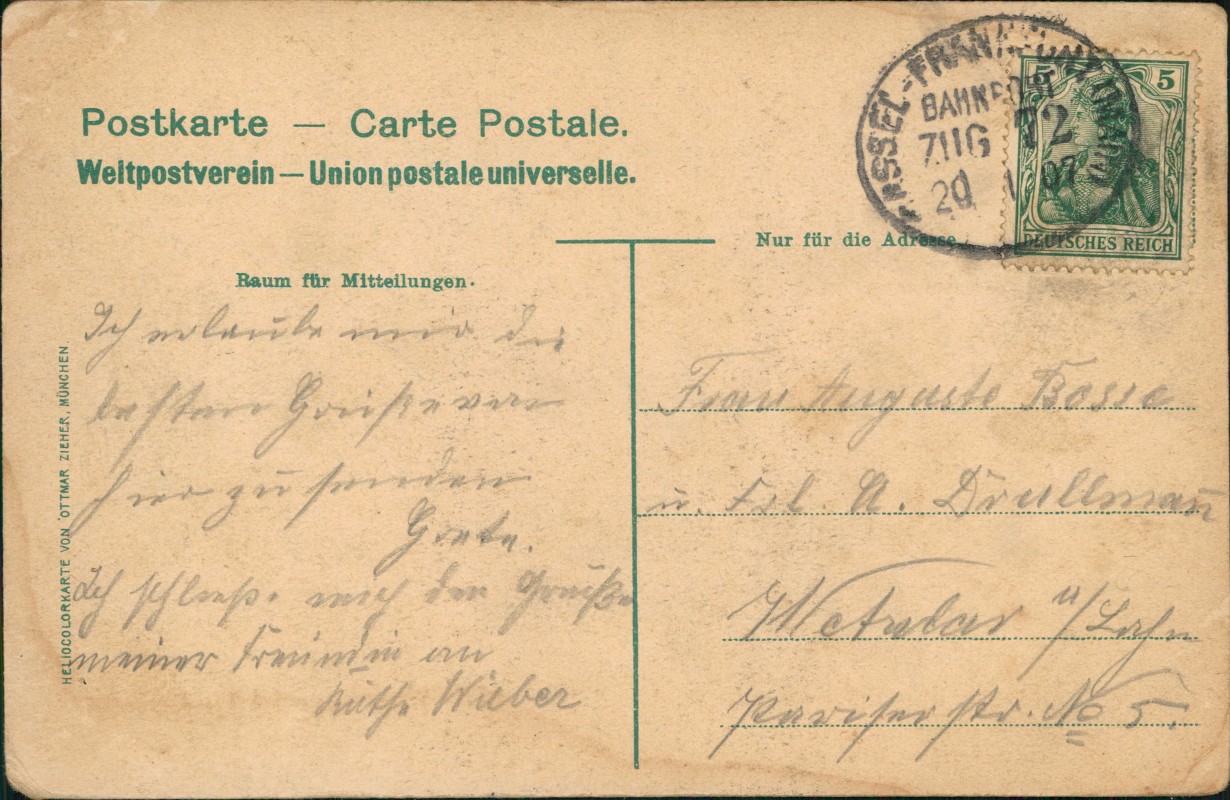 Postkarte — Carte Postale.
Weltpostverein — Union postale universelle.
CASSEL-FRANKFURT (MAIN)
BAHNPOST
ZUG 72
20 1 07
5 5
DEUTSCHES REICH
Nur für die Adresse.
Raum für Mitteilungen.
Ich erlaube mir die
besten Grüße von
hier zu senden
Grete.
Ich schließe mich den Grüßen
meiner Freundin an
Käthe Wieber
HELIOCOLORKARTE VON OTTMAR ZIEHER, MÜNCHEN
Frau Auguste Bosse
u. Frl. A. Drullmann
Wetzlar a/Lahn
Pariserstr. No 5.